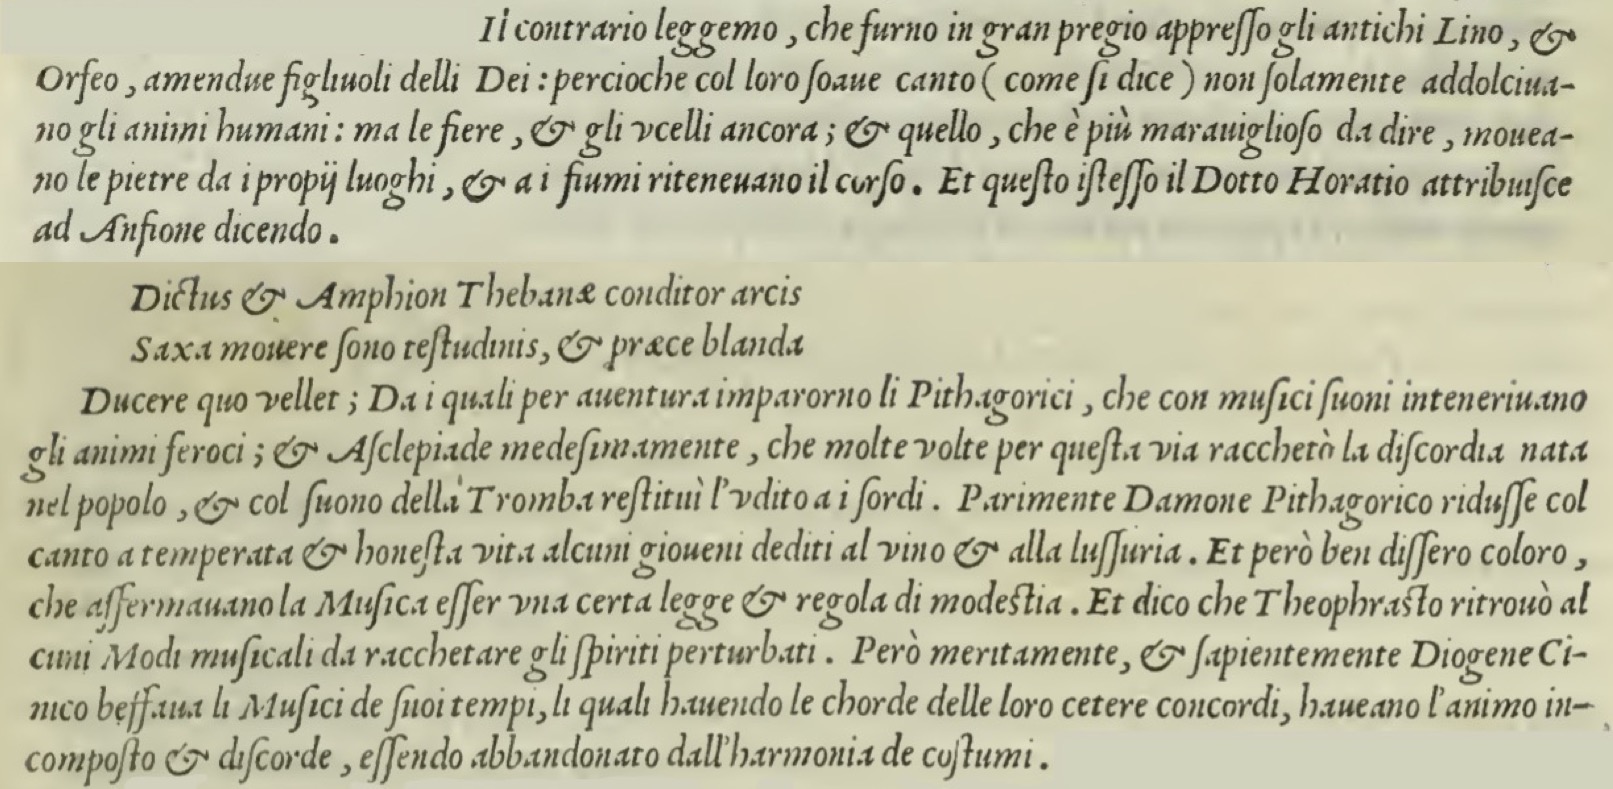 Il contrario leggemo, che furno in gran pregio appreſſo gli antichi Lino, &
Orfeo, amendue figliuoli delli Dei: percioche col loro ſoaue canto (come ſi dice) non ſolamente addolciua-
no gli animi humani: ma le fiere, & gli vcelli ancora; & quello, che è più marauiglioſo da dire, mouea-
no le pietre da i propij luoghi, & a i fiumi riteneuano il corſo. Et queſto iſteſſo il Dotto Horatio attribuiſce
ad Anfione dicendo.
Dictus & Amphion Thebanæ conditor arcis
Saxa mouere ſono teſtudinis, & præce blanda
Ducere quo vellet; Da i quali per auentura impararno li Pithagorici, che con muſici ſuoni inteneriuano
gli animi feroci; & Aſclepiade medeſimamente, che molte volte per queſta via racchetò la diſcordia nata
nel popolo, & col ſuono della Tromba reſtituì l'vdito a i ſordi. Parimente Damone Pithagorico riduſſe col
canto a temperata & honeſta vita alcuni gioueni dediti al vino & alla luſſuria. Et però ben diſſero coloro,
che affermauano la Muſica eſſer vna certa legge & regola di modeſtia. Et dico che Theophraſto ritrouò al
cuni Modi muſicali da racchetare gli ſpiriti perturbati. Però meritamente, & ſapientemente Diogene Ci-
nico beffaua li Muſici de ſuoi tempi, li quali hauendo le chorde delle loro cetere concordi, haueano l'animo in-
compoſto & diſcorde, eſſendo abbandonato dall'harmonia de coſtumi.